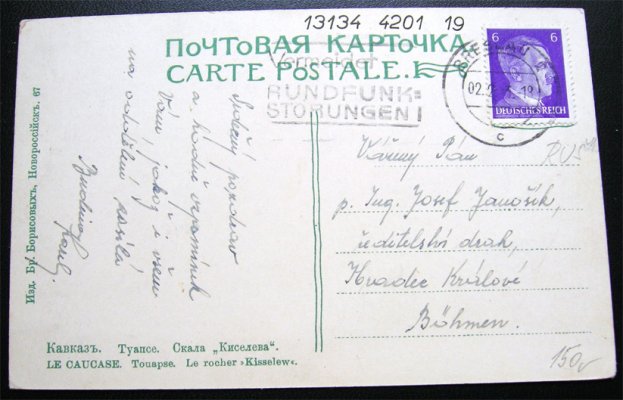 13134 4201 19
ПОЧТОВАЯ КАРТОЧКА
CARTE POSTALE.
Vermeidet
RUNDFUNK=
STÖRUNGEN!
BRESLAU
02.
c
6 6
DEUTSCHES REICH
Srdečný pozdrav
a hodně vzpomínek
Vám jakož i všem
na oddělení zasílá
Vážný Pán
p. Ing. Josef Janošík,
ředitelství drah,
Hradec Králové
Böhmen.
150,-
Изд. Бр. Борисовыхъ, Новороссійскъ. 67
Кавказъ. Туапсе. Скала „Киселева“.
LE CAUCASE. Touapse. Le rocher »Kisselew«.